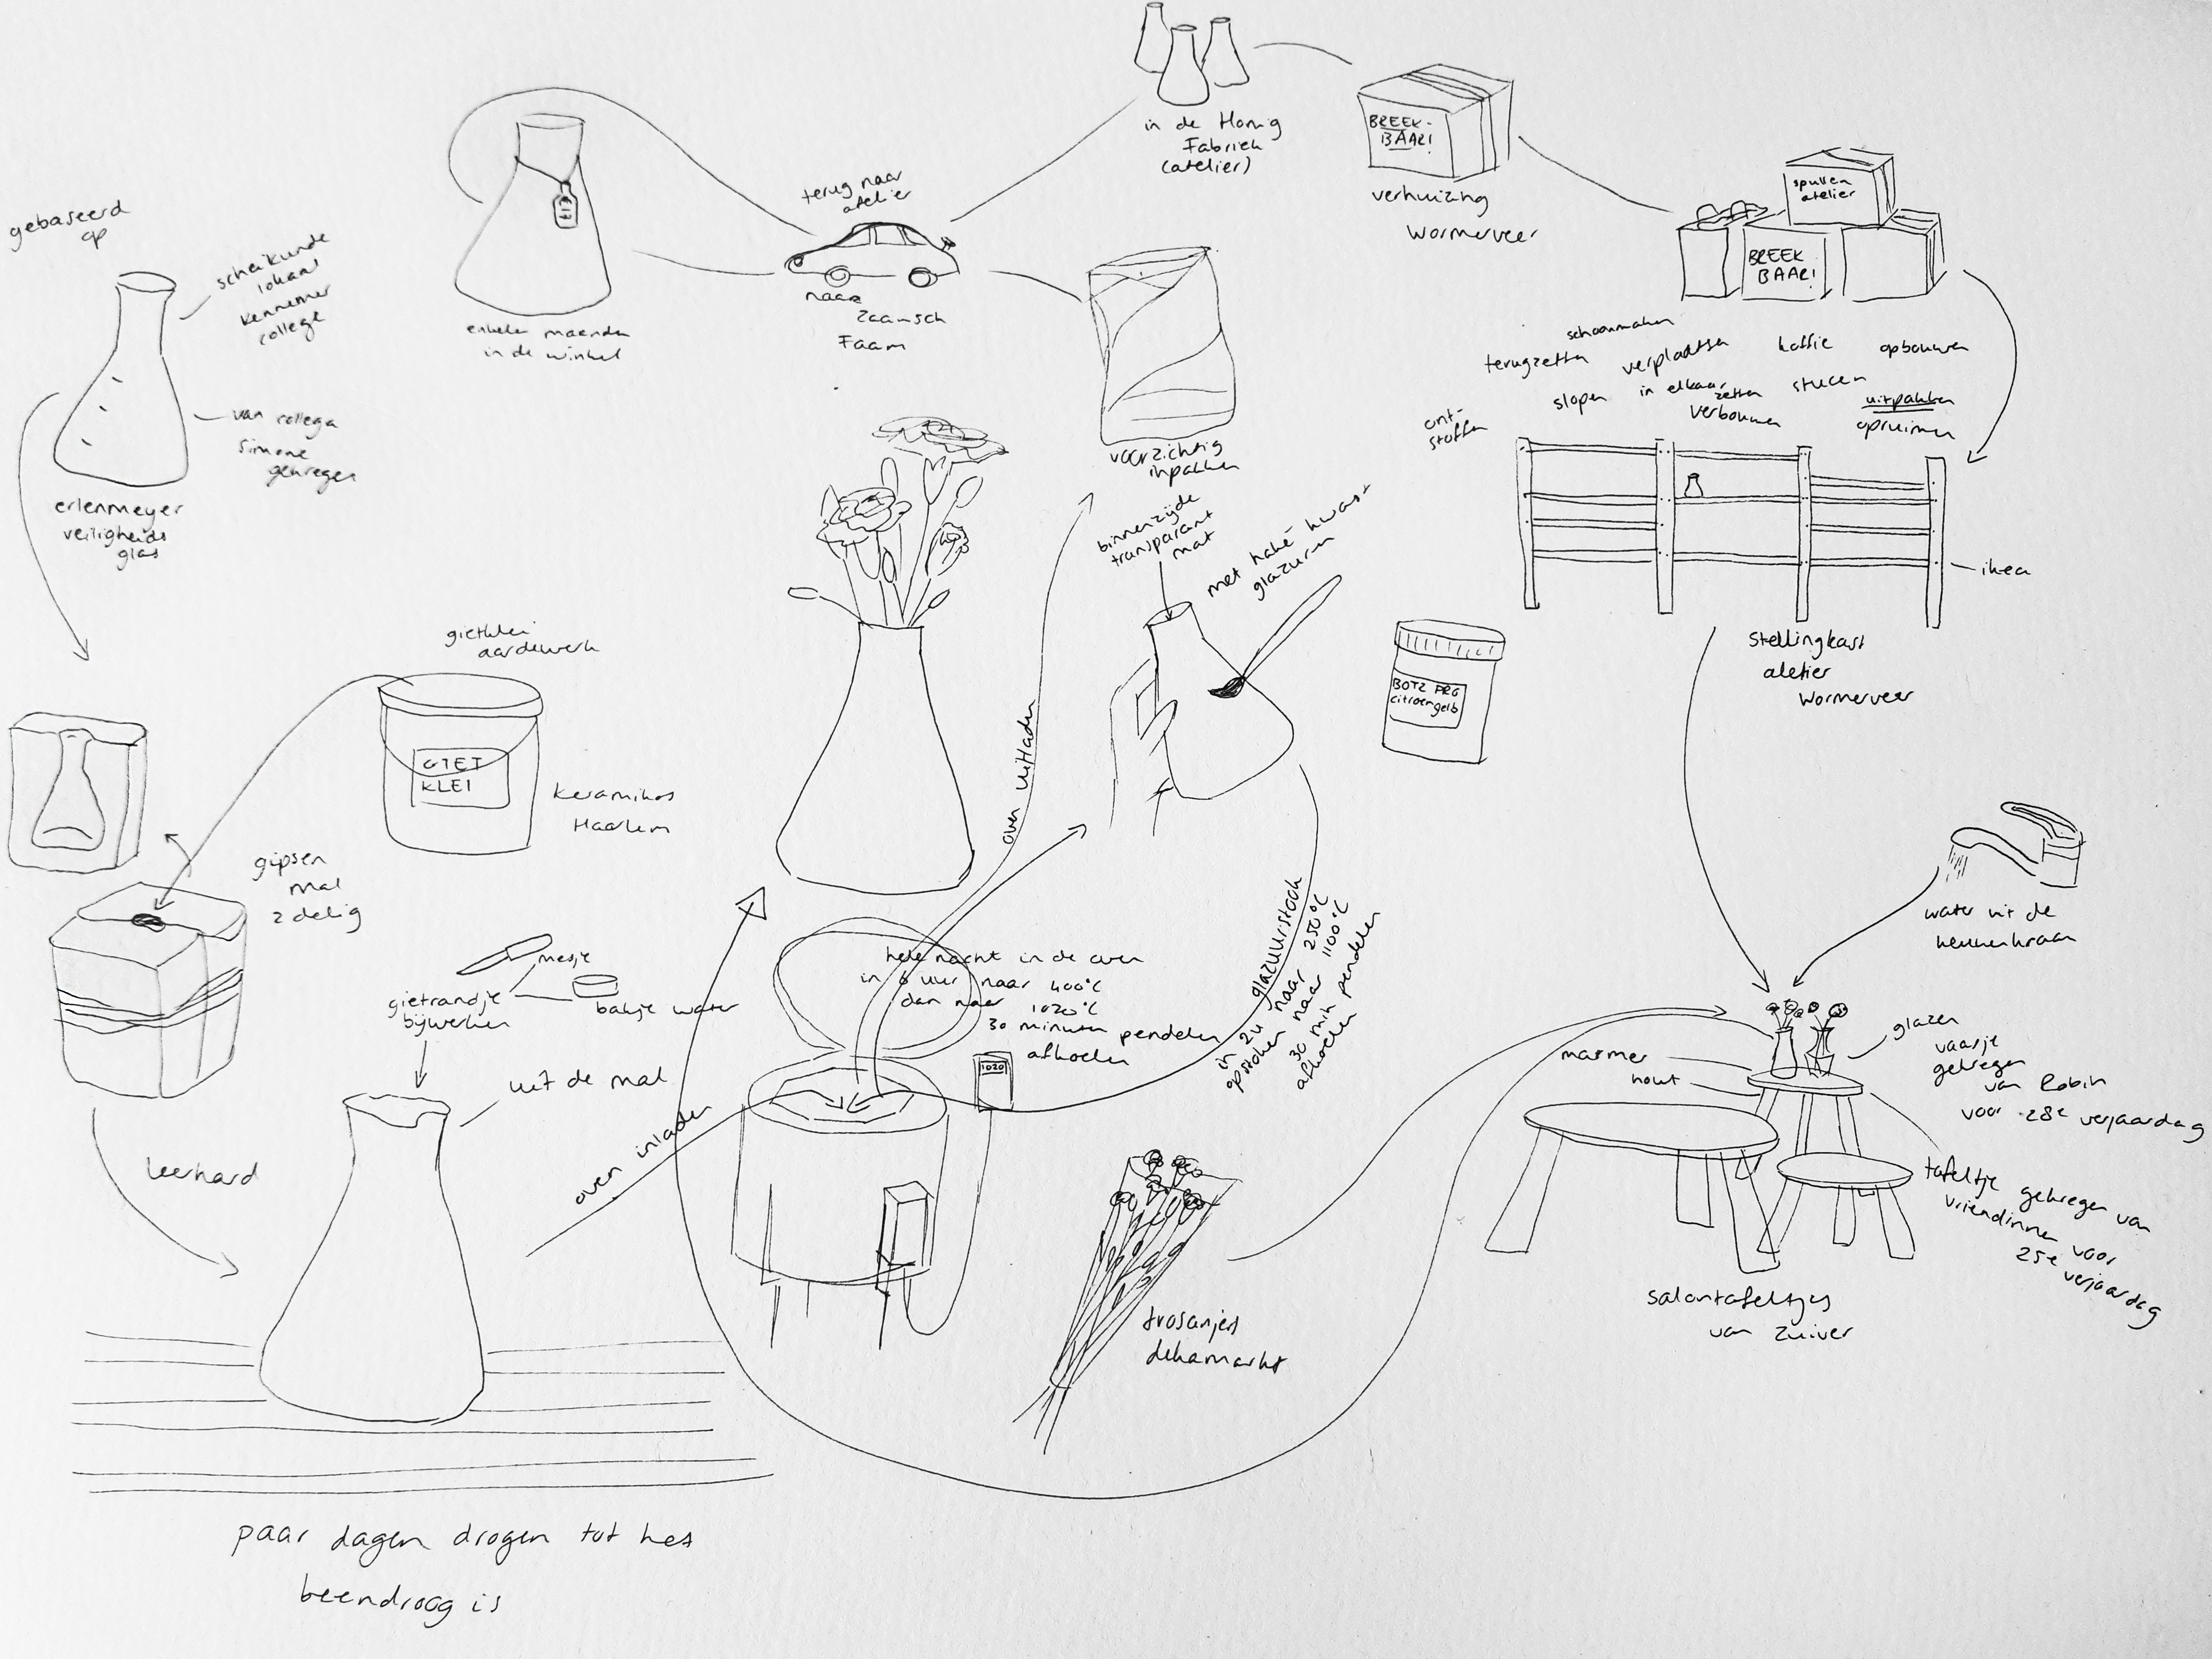 gebaseerd
op
scheikunde
lokaal
kennemer
college
van collega
simone
gekregen
erlenmeyer
veiligheids
glas
gietklei
aardewerk
GIET
KLEI
keramikos
Haarlem
gipsen
mal
2 delig
mesje
gietrandje
bijwerken
bakje water
uit de mal
leerhard
paar dagen drogen tot het
beendroog is
over inladen
hele nacht in de oven
in 6 uur naar 400°C
dan naar
1020°C
30 minuten pendelen
afkoelen
1020
over uitladen
binnenzijde
transparant
mat
met haké kwast
glazuren
BOTZ PRO
citroengelb
glazuurstook
in 2u naar 250°C
opstoken naar 1100°C
30 min pendelen
afkoelen
voorzichtig
inpakken
terug naar
atelier
naar
Zaansch
Faam
enkele maanden
in de winkel
in de Honig
Fabriek
(atelier)
BREEK-
BAAR!
verhuizing
Wormerveer
spullen
atelier
BREEK
BAAR!
schoonmaken
terugzetten
verplaatsen
koffie
opbouwen
slopen
in elkaar
zetten
stucen
uitpakken
verbouwen
opruimen
ont-
stoffen
ikea
stellingkast
aletier
Wormerveer
water uit de
keukenkraan
marmer
hout
glazen
vaasje
gekregen
van Robin
voor 28e verjaardag
tafeltje gekregen van
vriendinnen voor
25e
verjaardag
salontafeltjes
van Zuiver
trosanjers
dekamarkt